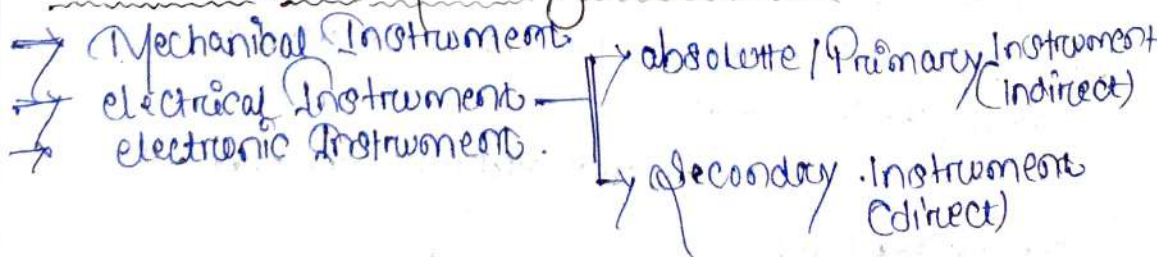 → Mechanical Instrument
→ electrical Instrument
→ electronic Instrument.
absolute / Primary Instrument
(indirect)
Secondary Instrument
(direct)